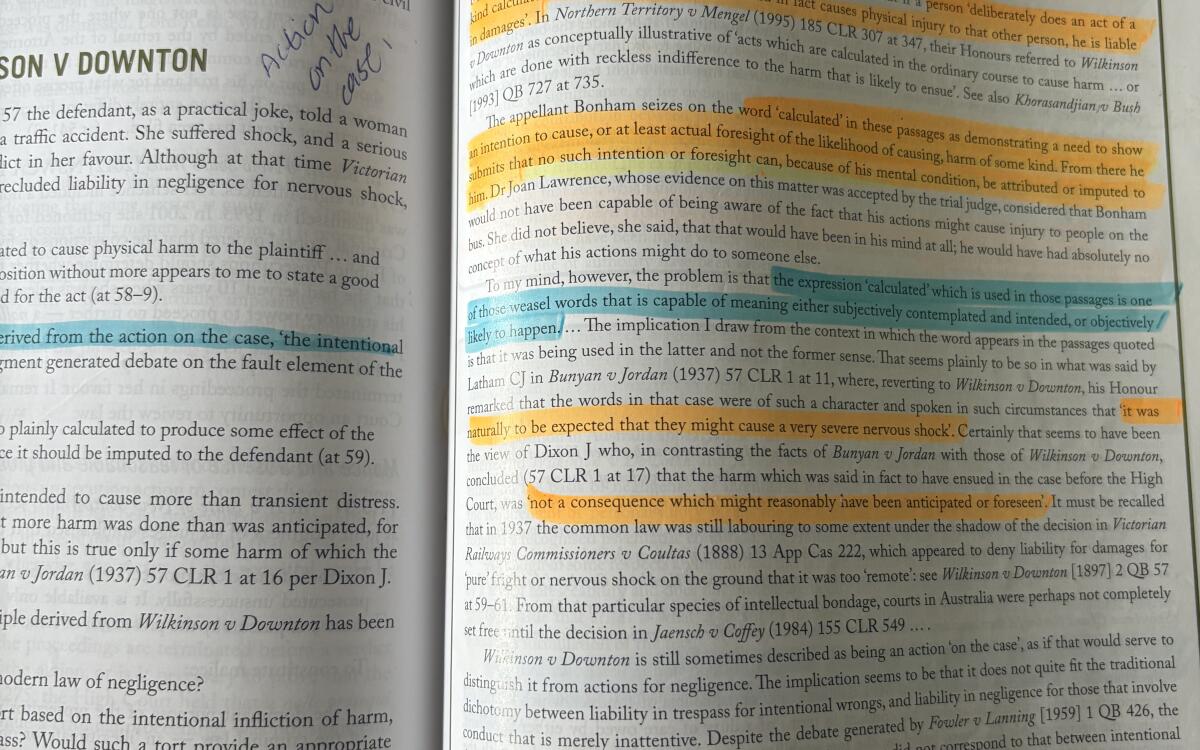 SON V DOWNTON
Action
on the
case!
57 the defendant, as a practical joke, told a woman
a traffic accident. She suffered shock, and a serious
lict in her favour. Although at that time Victorian
recluded liability in negligence for nervous shock,
ated to cause physical harm to the plaintiff … and
osition without more appears to me to state a good
d for the act (at 58–9).
erived from the action on the case, ‘the intentional
gment generated debate on the fault element of the
o plainly calculated to produce some effect of the
ce it should be imputed to the defendant (at 59).
intended to cause more than transient distress.
t more harm was done than was anticipated, for
but this is true only if some harm of which the
an v Jordan (1937) 57 CLR 1 at 16 per Dixon J.
iple derived from Wilkinson v Downton has been
nodern law of negligence?
rt based on the intentional infliction of harm,
ass? Would such a tort provide an appropriate
person ‘deliberately does an act of a
kind in fact causes physical injury to that other person, he is liable
in damages’. In Northern Territory v Mengel (1995) 185 CLR 307 at 347, their Honours referred to Wilkinson
v Downton as conceptually illustrative of ‘acts which are calculated in the ordinary course to cause harm … or
which are done with reckless indifference to the harm that is likely to ensue’. See also Khorasandjian v Bush
[1993] QB 727 at 735.
The appellant Bonham seizes on the word ‘calculated’ in these passages as demonstrating a need to show
an intention to cause, or at least actual foresight of the likelihood of causing, harm of some kind. From there he
submits that no such intention or foresight can, because of his mental condition, be attributed or imputed to
him. Dr Joan Lawrence, whose evidence on this matter was accepted by the trial judge, considered that Bonham
would not have been capable of being aware of the fact that his actions might cause injury to people on the
bus. She did not believe, she said, that that would have been in his mind at all; he would have had absolutely no
concept of what his actions might do to someone else.
To my mind, however, the problem is that the expression ‘calculated’ which is used in those passages is one
of those weasel words that is capable of meaning either subjectively contemplated and intended, or objectively
likely to happen. … The implication I draw from the context in which the word appears in the passages quoted
is that it was being used in the latter and not the former sense. That seems plainly to be so in what was said by
Latham CJ in Bunyan v Jordan (1937) 57 CLR 1 at 11, where, reverting to Wilkinson v Downton, his Honour
remarked that the words in that case were of such a character and spoken in such circumstances that ‘it was
naturally to be expected that they might cause a very severe nervous shock’. Certainly that seems to have been
the view of Dixon J who, in contrasting the facts of Bunyan v Jordan with those of Wilkinson v Downton,
concluded (57 CLR 1 at 17) that the harm which was said in fact to have ensued in the case before the High
Court, was ‘not a consequence which might reasonably have been anticipated or foreseen’. It must be recalled
that in 1937 the common law was still labouring to some extent under the shadow of the decision in Victorian
Railways Commissioners v Coultas (1888) 13 App Cas 222, which appeared to deny liability for damages for
‘pure’ fright or nervous shock on the ground that it was too ‘remote’: see Wilkinson v Downton [1897] 2 QB 57
at 59–61. From that particular species of intellectual bondage, courts in Australia were perhaps not completely
set free until the decision in Jaensch v Coffey (1984) 155 CLR 549 ….
Wilkinson v Downton is still sometimes described as being an action ‘on the case’, as if that would serve to
distinguish it from actions for negligence. The implication seems to be that it does not quite fit the traditional
dichotomy between liability in trespass for intentional wrongs, and liability in negligence for those that involve
conduct that is merely inattentive. Despite the debate generated by Fowler v Lanning [1959] 1 QB 426, the
did not correspond to that between intentional